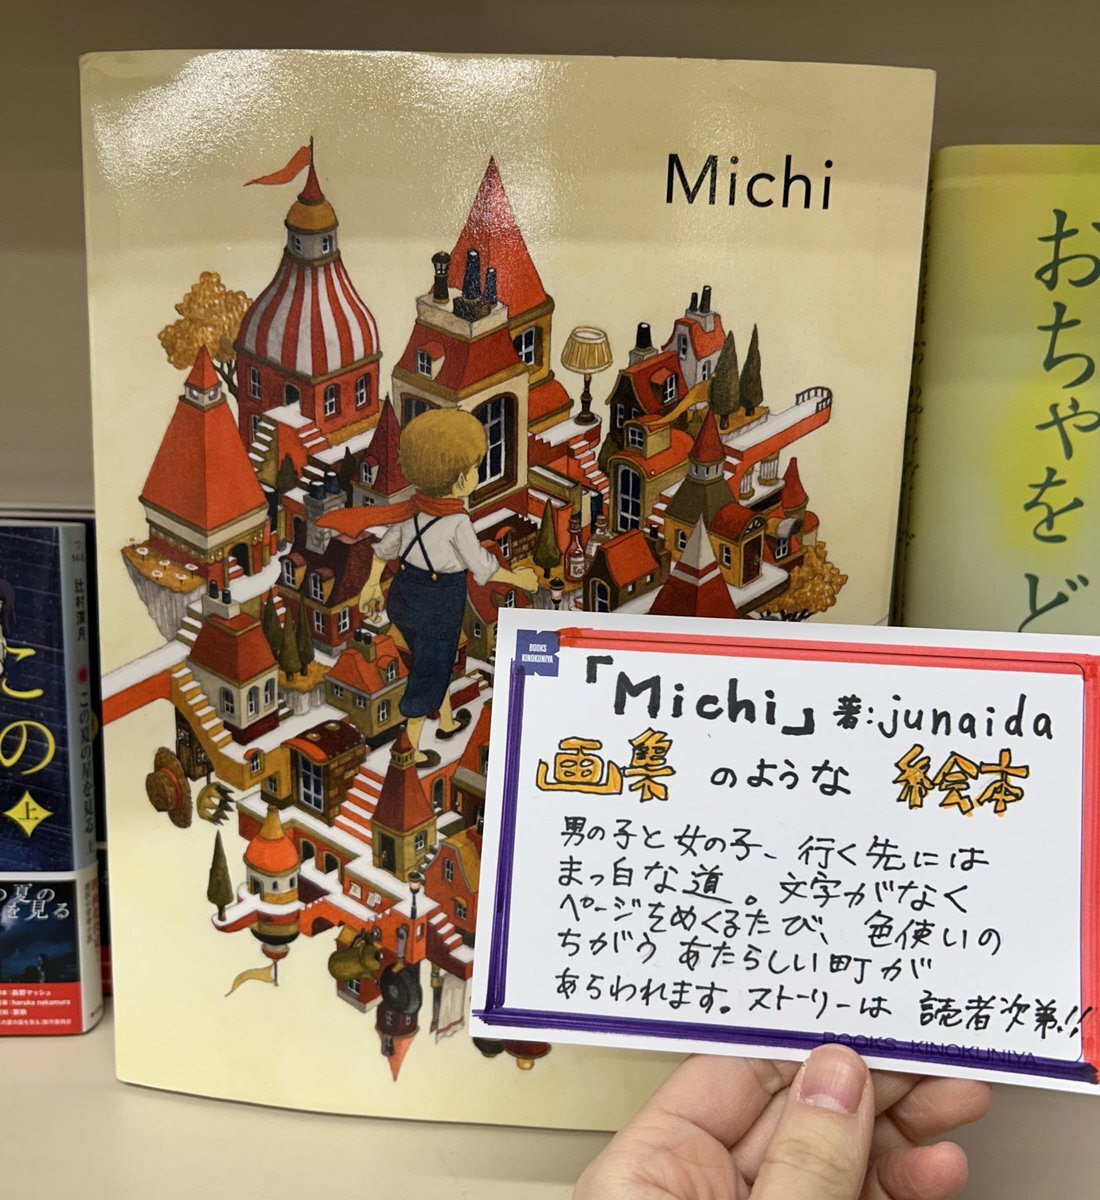 Michi
おちゃをど
辻村深月 この夏の星を見る 上
この
上
夏の
を見る
森野マッシュ
haruka nakamura
BOOKS
KINOKUNIYA
「Michi」著:junaida
画集のような 絵本
男の子と女の子、行く先には
まっ白な道。文字がなく
ページをめくるたび、色使いの
ちがう あたらしい町が
あらわれます。ストーリーは 読者次第!!
BOOKS KINOKUNIYA